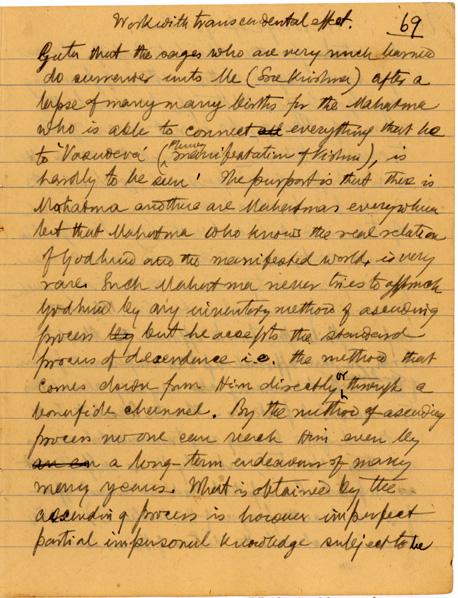 Work with transcendental effect. 69
Gita that the sages who are very much learned
do surrender unto Me (Sree Krishna) after a
lapse of many many births for the Mahatma
who is able to connect all everything that be
to 'Vasudeva' (manifestation of Vishnu), is
hardly to be seen! The purport is that there is
Mahatma and there are Mahatmas everywhere
but that Mahatma who knows the real relation
of Godhead and the manifested world, is very
rare. Such Mahatma never tries to approach
Godhead by any inventory method of ascending
process by but he accepts the standard
process of descendence i.e. the method that
comes down from Him directly or through a
bonafide channel. By the method of ascending
process no one can reach Him even by
a long-term endeavour of many
many years. What is obtained by the
ascending process is however imperfect
partial impersonal knowledge subject to be